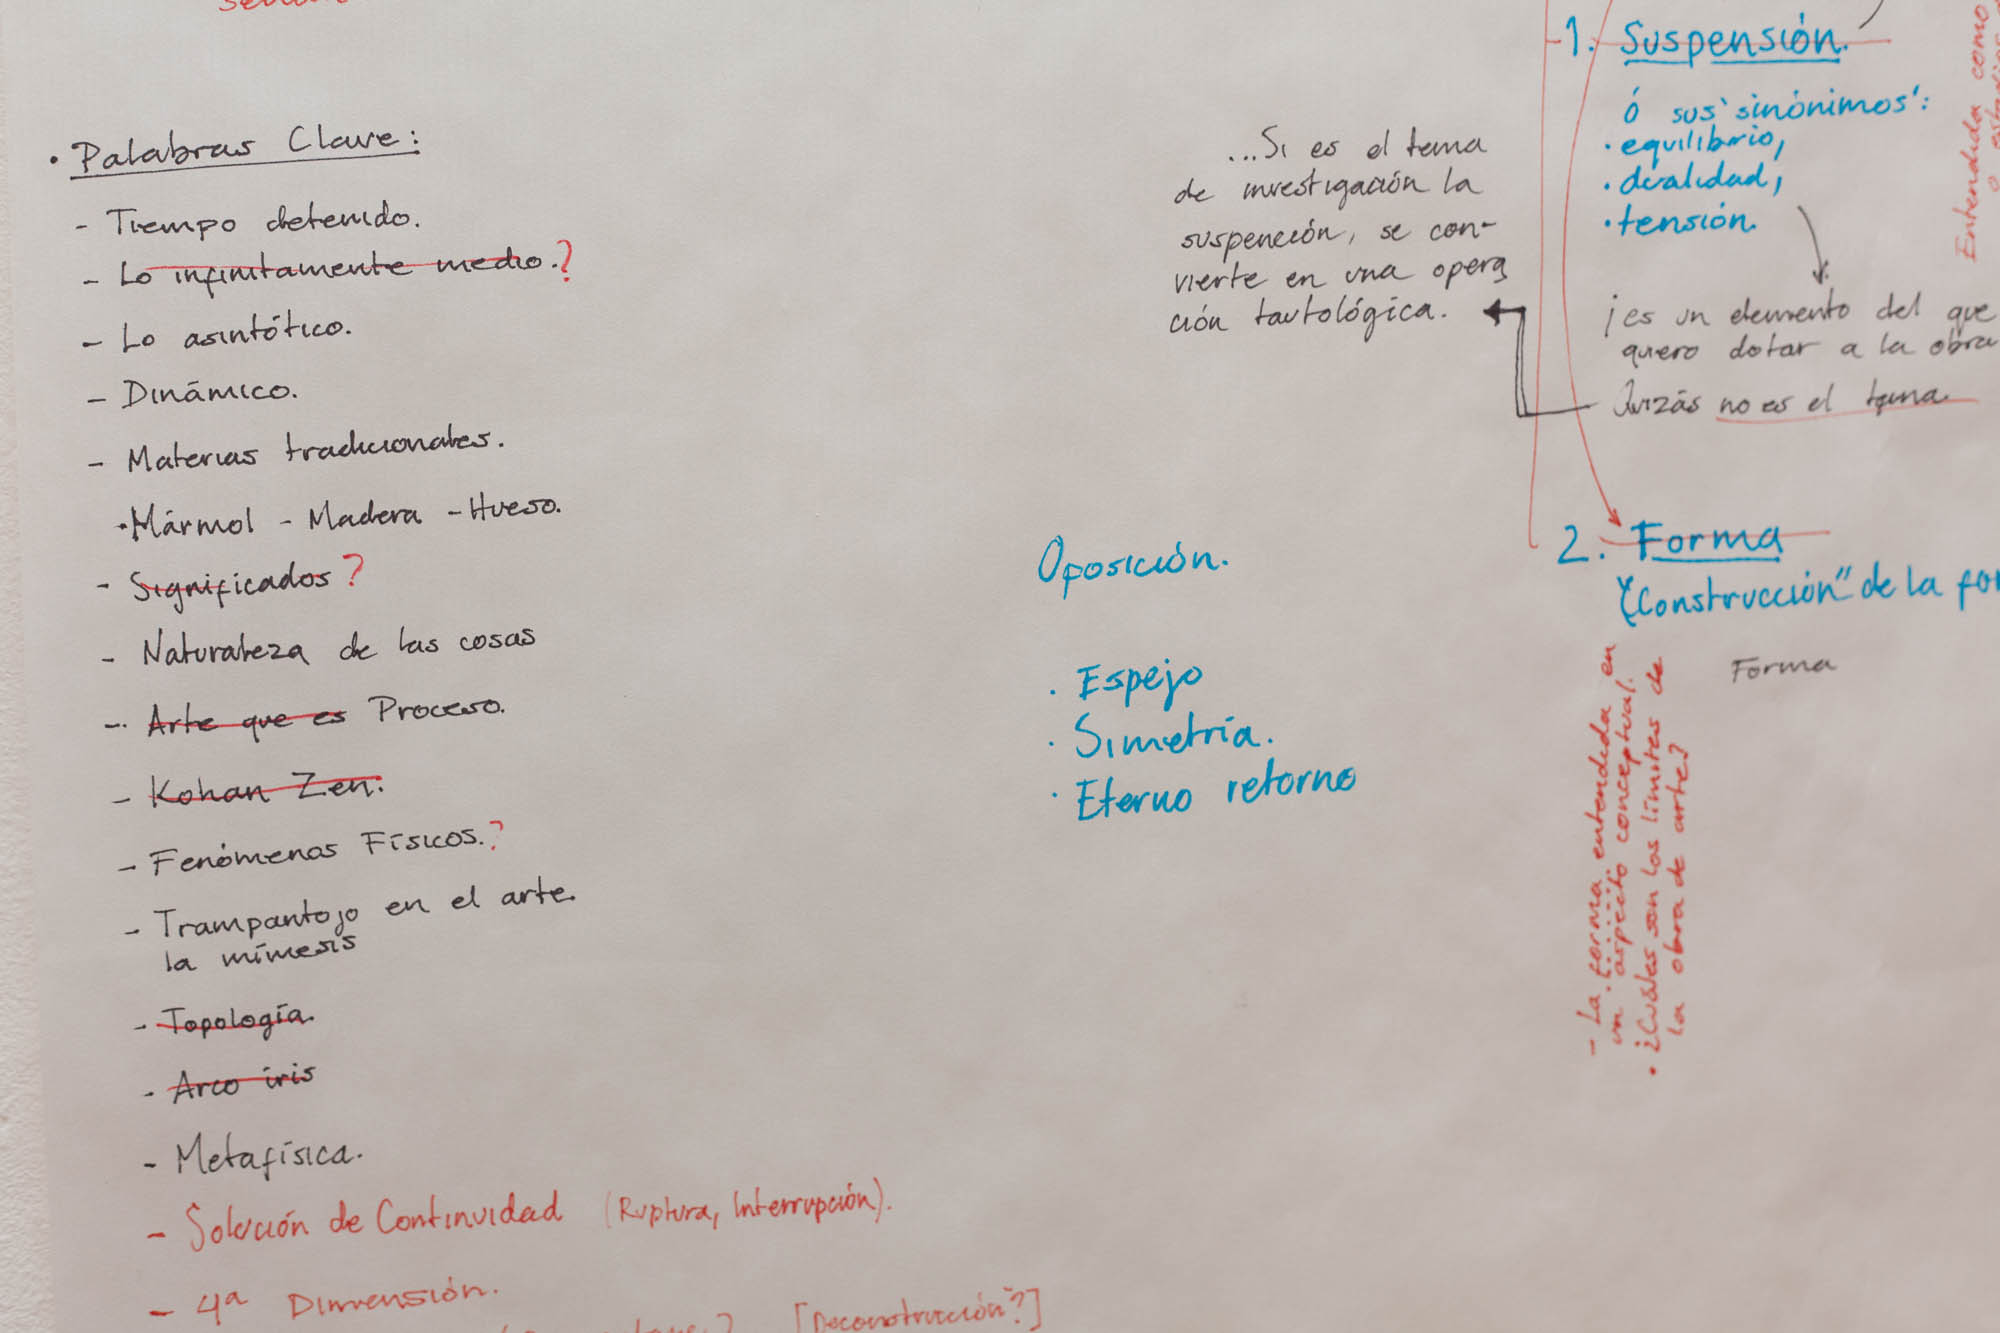 • Palabras Clave:
- Tiempo detenido.
- Lo infinitamente medio.?
- Lo asintótico.
- Dinámico.
- Materias tradicionales.
·Mármol - Madera - Hueso.
- Significados?
- Naturaleza de las cosas
- Arte que es Proceso.
- Kohan Zen.
- Fenómenos Físicos.?
- Trampantojo en el arte.
la mímesis
- Topología.
- Arco iris
- Metafísica.
- Solución de Continuidad (Ruptura, Interrupción).
- 4ª Dimensión.
[Deconstrucción?]
Oposición.
· Espejo
· Simetría.
· Eterno retorno
...Si es el tema
de investigación la
suspención, se con-
vierte en una opera
ción tautológica.
1. Suspensión.
ó sus 'sinónimos':
• equilibrio,
• dualidad,
• tensión.
¡es un elemento del que
quiero dotar a la obra
Quizás no es el tema.
2. Forma
("Construcción" de la
Forma
- La forma entendida en
un aspecto conceptual.
• ¿Cuáles son los límites de
la obra de arte?
Entendida como